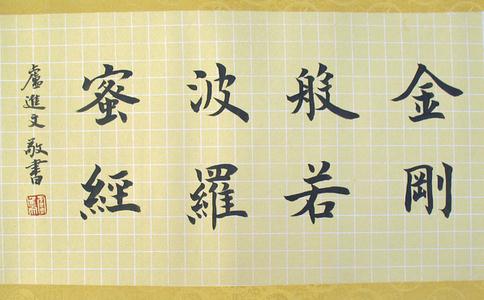 金剛
般若
波羅
蜜經
盧進文敬書